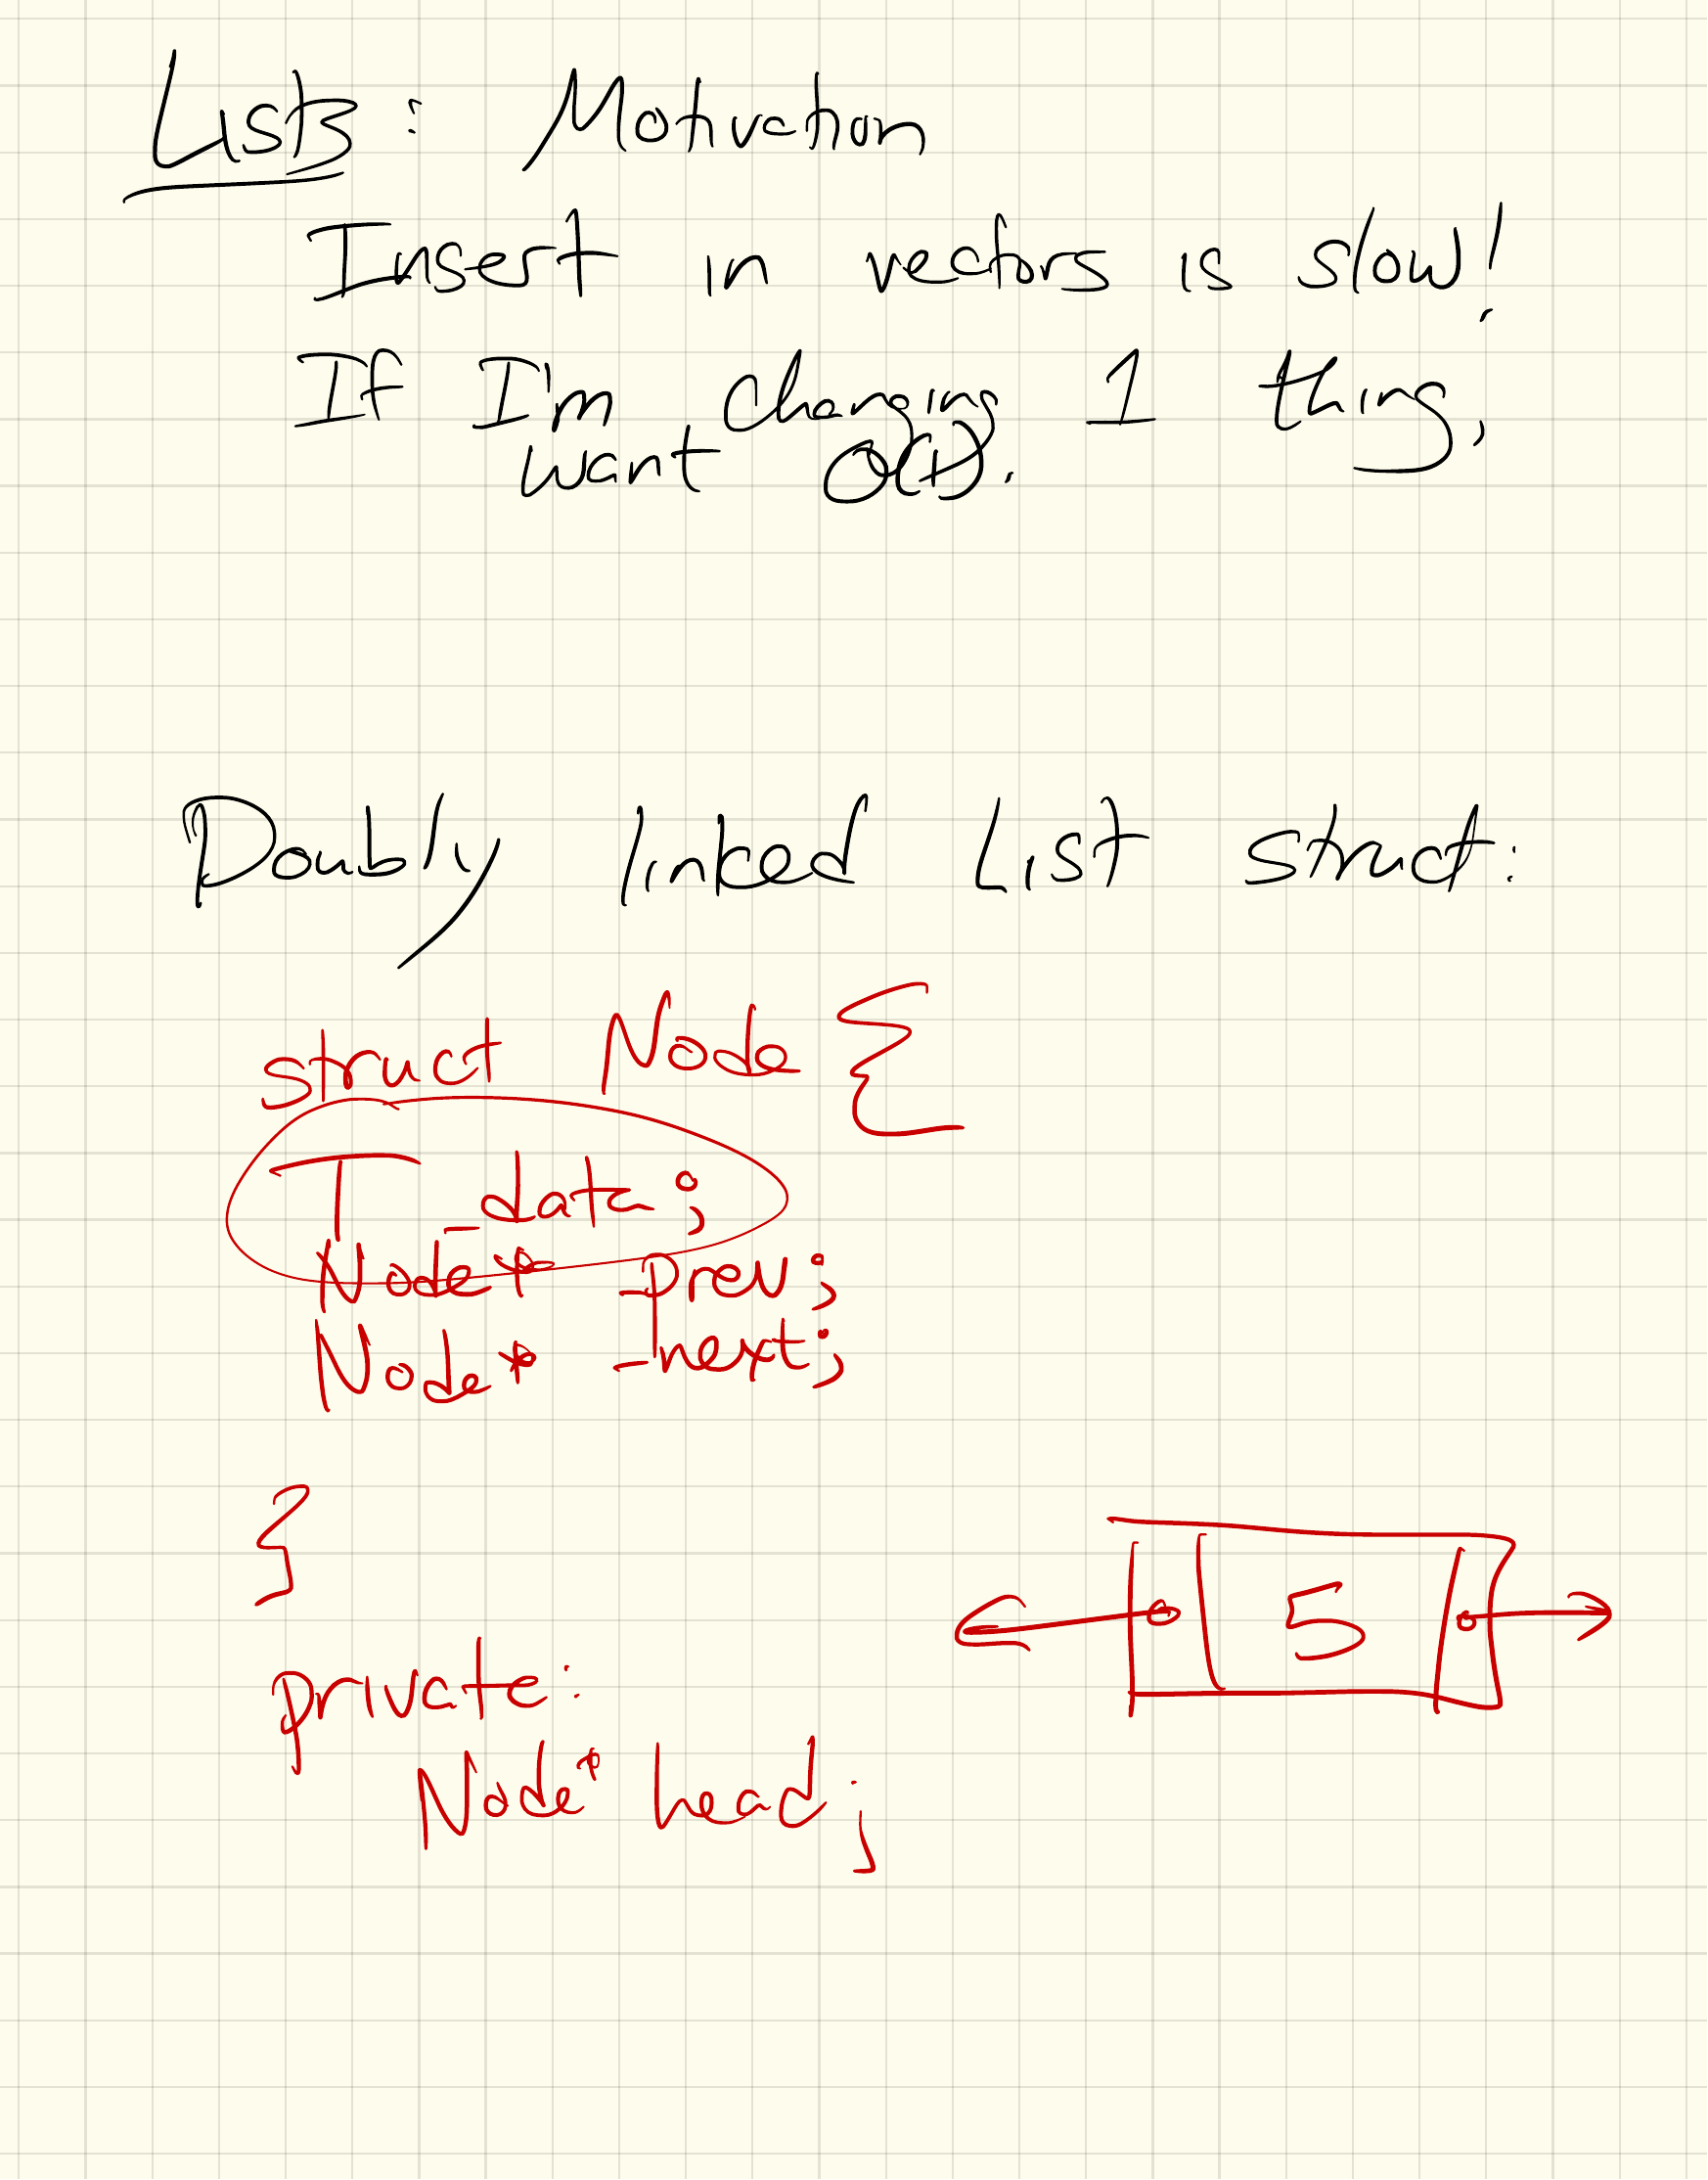 Lists: Motivation
Insert in vectors is slow!
If I'm changing 1 thing,
want O(1).
Doubly linked List struct:
struct Node {
T _data;
Node* _prev;
Node* _next;
}
5
private:
Node* head;